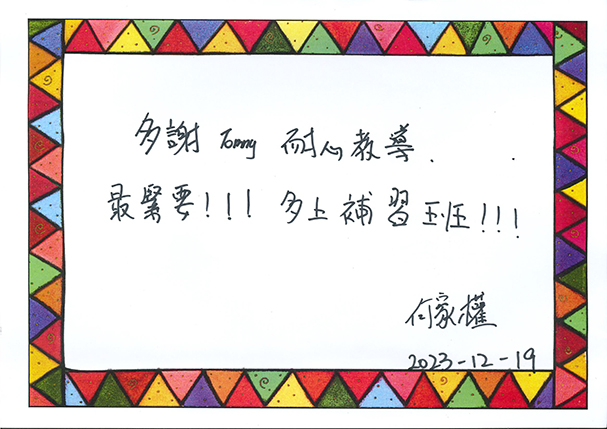 多謝 Tommy 耐心教導.
最緊要!!! 多上補習班!!!
何家權
2023-12-19